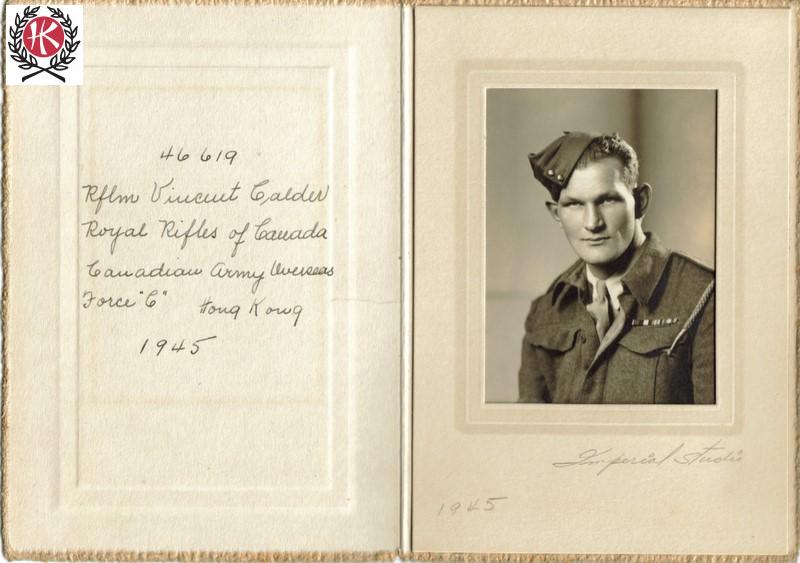 HK
46619
Rflm Vincent Calder
Royal Rifles of Canada
Canadian Army Overseas
Force "C" Hong Kong
1945
Imperial Studio
1945